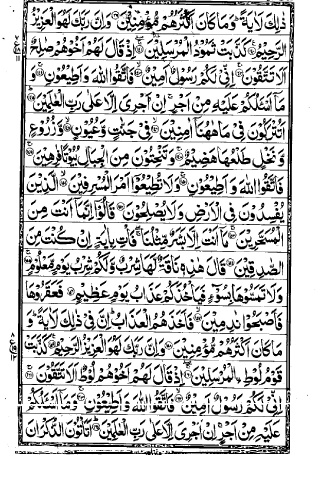 ذٰلِكَ لَاٰيَةً ؕ وَمَا كَانَ اَكْثَرُهُمْ مُّؤْمِنِيْنَ وَاِنَّ رَبَّكَ لَهُوَ الْعَزِيْزُ
الرَّحِيْمُ كَذَّبَتْ ثَمُوْدُ الْمُرْسَلِيْنَ اِذْ قَالَ لَهُمْ اَخُوْهُمْ صٰلِحٌ
اَلَا تَتَّقُوْنَ اِنِّيْ لَكُمْ رَسُوْلٌ اَمِيْنٌ فَاتَّقُوا اللهَ وَاَطِيْعُوْنِ وَ
مَآ اَسْـَٔلُكُمْ عَلَيْهِ مِنْ اَجْرٍ اِنْ اَجْرِيَ اِلَّا عَلٰى رَبِّ الْعٰلَمِيْنَ
اَتُتْرَكُوْنَ فِيْ مَا هٰهُنَآ اٰمِنِيْنَ فِيْ جَنّٰتٍ وَّعُيُوْنٍ وَّزُرُوْعٍ
وَّنَخْلٍ طَلْعُهَا هَضِيْمٌ وَتَنْحِتُوْنَ مِنَ الْجِبَالِ بُيُوْتًا فٰرِهِيْنَ
فَاتَّقُوا اللهَ وَاَطِيْعُوْنِ وَلَا تُطِيْعُوْٓا اَمْرَ الْمُسْرِفِيْنَ الَّذِيْنَ
يُفْسِدُوْنَ فِي الْاَرْضِ وَلَا يُصْلِحُوْنَ قَالُوْٓا اِنَّمَآ اَنْتَ مِنَ
الْمُسَحَّرِيْنَ مَآ اَنْتَ اِلَّا بَشَرٌ مِّثْلُنَا فَاْتِ بِاٰيَةٍ اِنْ كُنْتَ مِنَ
الصّٰدِقِيْنَ قَالَ هٰذِهٖ نَاقَةٌ لَّهَا شِرْبٌ وَّلَكُمْ شِرْبُ يَوْمٍ مَّعْلُوْمٍ
وَلَا تَمَسُّوْهَا بِسُوْٓءٍ فَيَاْخُذَكُمْ عَذَابُ يَوْمٍ عَظِيْمٍ فَعَقَرُوْهَا
فَاَصْبَحُوْا نٰدِمِيْنَ فَاَخَذَهُمُ الْعَذَابُ ؕ اِنَّ فِيْ ذٰلِكَ لَاٰيَةً ؕ وَ
مَا كَانَ اَكْثَرُهُمْ مُّؤْمِنِيْنَ وَاِنَّ رَبَّكَ لَهُوَ الْعَزِيْزُ الرَّحِيْمُ كَذَّبَتْ
قَوْمُ لُوْطِ الْمُرْسَلِيْنَ اِذْ قَالَ لَهُمْ اَخُوْهُمْ لُوْطٌ اَلَا تَتَّقُوْنَ
اِنِّيْ لَكُمْ رَسُوْلٌ اَمِيْنٌ فَاتَّقُوا اللهَ وَاَطِيْعُوْنِ وَمَآ اَسْـَٔلُكُمْ
عَلَيْهِ مِنْ اَجْرٍ اِنْ اَجْرِيَ اِلَّا عَلٰى رَبِّ الْعٰلَمِيْنَ اَتَاْتُوْنَ الذُّكْرَانَ